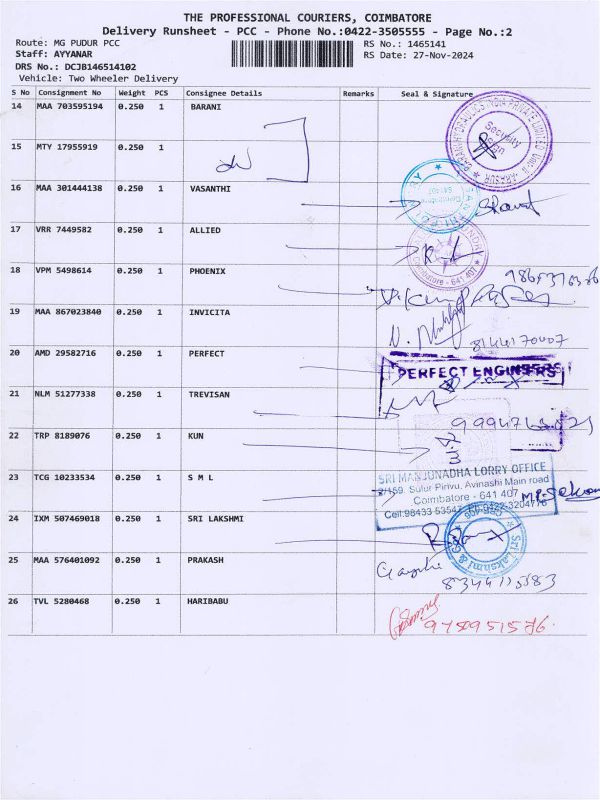 THE PROFESSIONAL COURIERS, COIMBATORE
Delivery Runsheet - PCC - Phone No.:0422-3505555 - Page No.:2
Route: MG PUDUR PCC RS No.: 1465141
Staff: AYYANAR RS Date: 27-Nov-2024
DRS No.: DCJB146514102
Vehicle: Two Wheeler Delivery
S No Consignment No Weight PCS Consignee Details Remarks Seal & Signature
14 MAA 703595194 0.250 1 BARANI
Security
15 MTY 17955919 0.250 1
16 MAA 301444138 0.250 1 VASANTHI
17 VRR 7449582 0.250 1 ALLIED
Coimbatore - 641 407
18 VPM 5498614 0.250 1 PHOENIX
19 MAA 867023840 0.250 1 INVICITA
8144170007
20 AMD 29582716 0.250 1 PERFECT
PERFECT ENGINEERS
21 NLM 51277338 0.250 1 TREVISAN
22 TRP 8189076 0.250 1 KUN
23 TCG 10233534 0.250 1 S M L
SRI MANJUNADHA LORRY OFFICE
2/159, Sulur Pirivu, Avinashi Main road
Coimbatore - 641 407
24 IXM 507469018 0.250 1 SRI LAKSHMI
Sri Lakshmi &
25 MAA 576401092 0.250 1 PRAKASH
26 TVL 5280468 0.250 1 HARIBABU